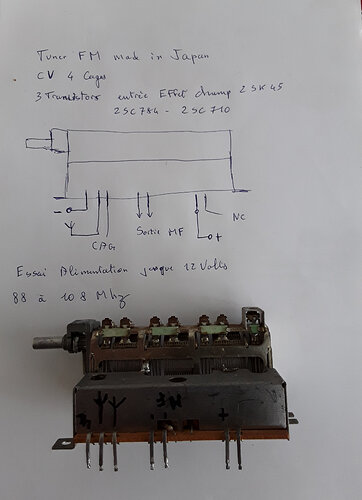 Tuner FM made in Japan
CV 4 Cages
3 Transistors entrée Effet champ 2SK45
2SC784 - 2SC710
-
CAG
Sortie MF
NC
+
Essai Alimentation jusque 12 Volts
88 à 108 Mhz
MF
+